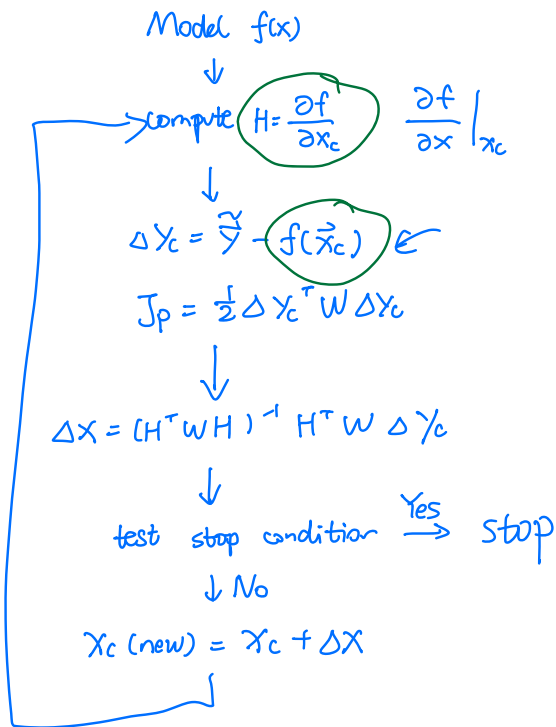 Model f(x)
↓
compute H = ∂f/∂x_c   ∂f/∂x |_x_c
↓
ΔY_c = ỹ - f(x⃗_c) ←
J_p = 1/2 ΔY_c^T W ΔY_c
↓
ΔX = (H^T W H)^-1 H^T W ΔY_c
↓
test stop condition Yes → stop
↓ No
x_c (new) = x_c + ΔX